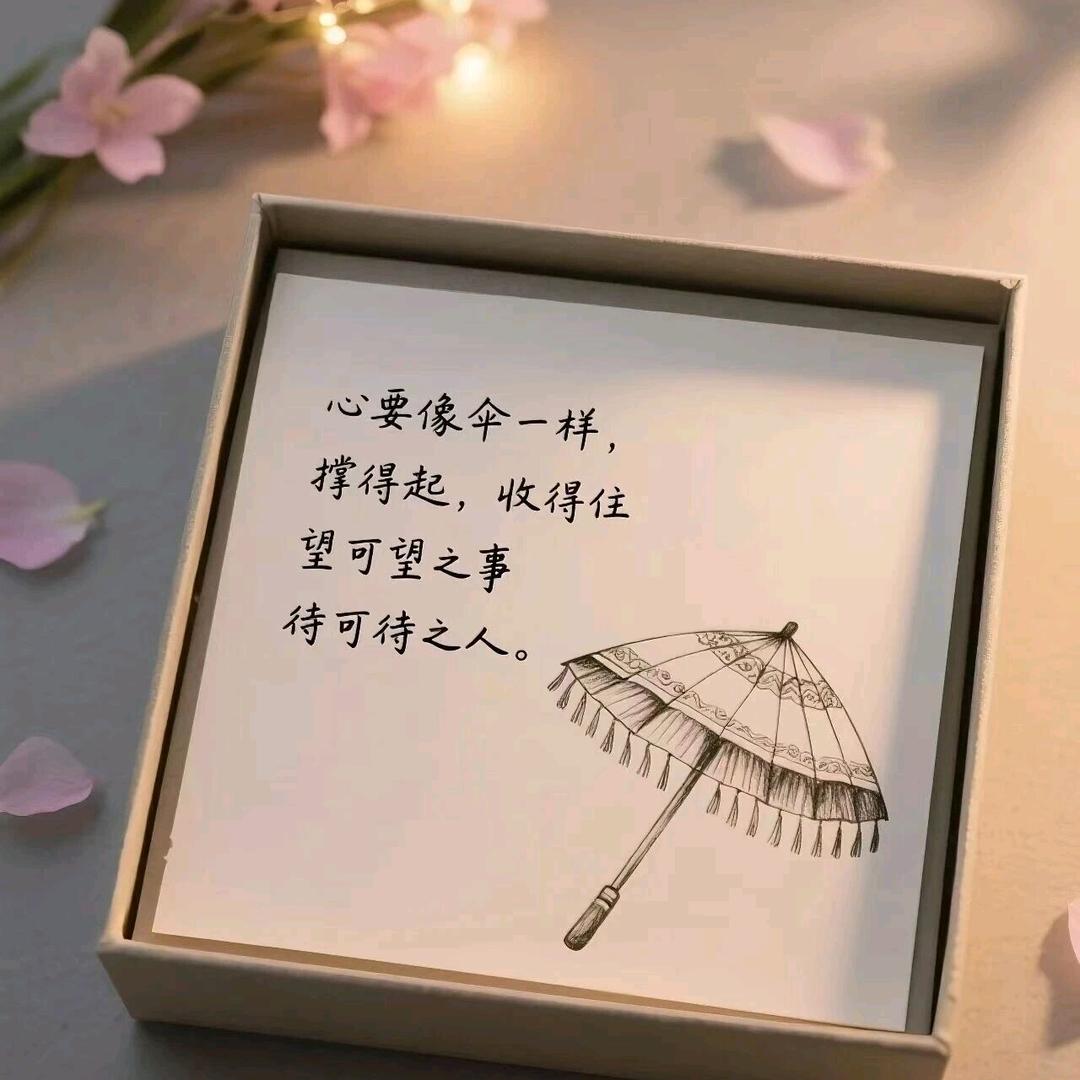 心要像伞一样，
撑得起，收得住
望可望之事
待可待之人。